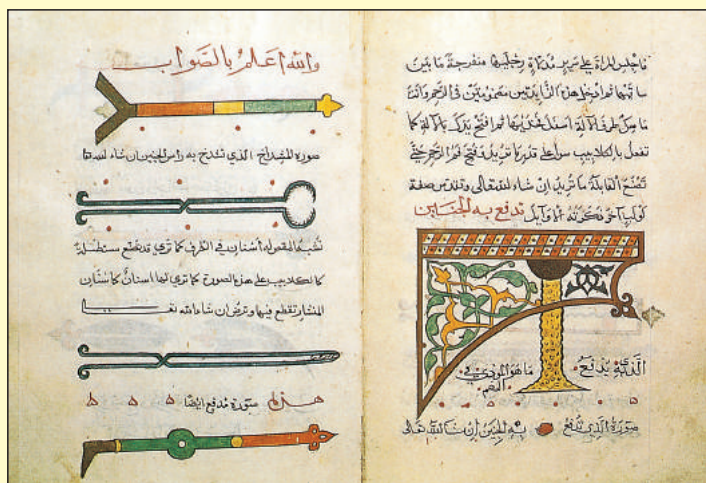 فاجلس المراة على سرير مدلاة رجليها منفرجة ما بين
ساقيها ثم ادخل هذه الزايدتين مضمومتين في الرحم وانت
ماسك طرف الالة اسفل فخذيها ثم افتح يدك بالالة كما
تفعل بالكلاليب سوا على قدر ما تريد فتح فم الرحم حتى
تصنع القابلة ما تريد ان شاء الله تعالى صفة
لولب آخر ذكرته الاوايل تدفع به الجنين
يدفع ما هو في
صورة الذي تدفع به الجنين ان شا الله تعالى
والله اعلم بالصواب
صورة المشداخ الذي تشدخ به راس الجنين ان شاء الله
تشبه المقص له أسنان في الطرف كما ترى وقد يصنع مستطيلة
كالكلاليب على هذه الصورة كما ترى لها اسنان كاسنان
المنشار تقطع بها وترض ان شاء الله
صورة مدفع ايضا